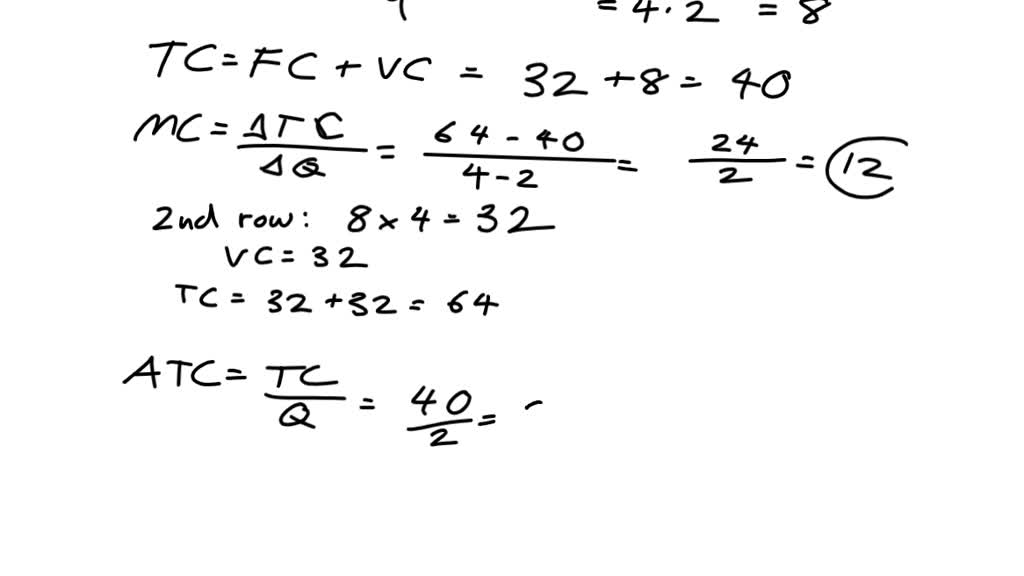 = 4 · 2 = 8
TC = FC + VC = 32 + 8 = 40
MC = ΔTC / ΔQ = 64 - 40 / 4 - 2 = 24 / 2 = 12
2nd row: 8 × 4 = 32
VC = 32
TC = 32 + 32 = 64
ATC = TC / Q = 40 / 2 =